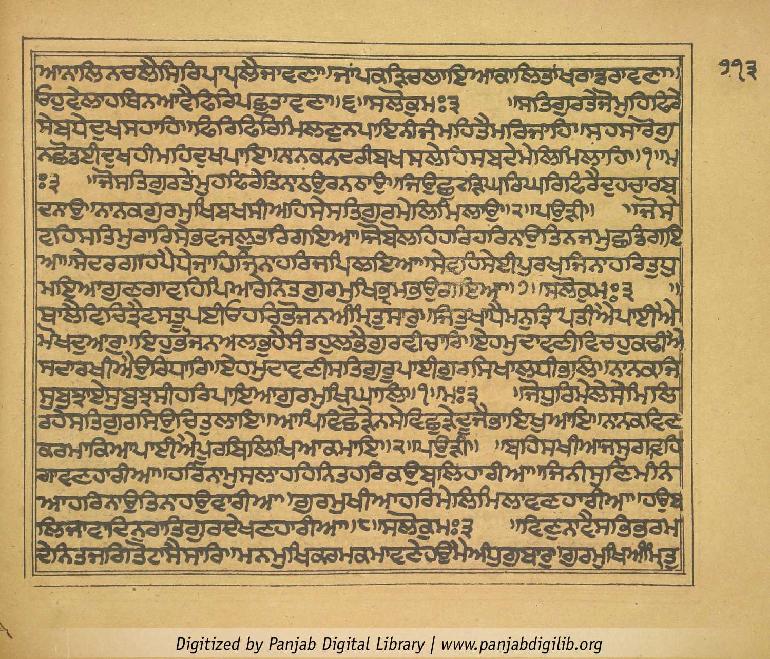 ਆਨਾਲਿਨਚਲੈਸਿਰਿਪਾਪਲੈਜਾਵਣਾ॥ਜਾਂਪਕੜਿਚਲਾਇਆਕਾਲਿਤਾਂਖਰਾਡਰਾਵਣਾ॥
ਓਹੁਵੇਲਾਹਥਿਨਆਵੈਫਿਰਿਪਛੁਤਾਵਣਾ॥੬॥ਸਲੋਕੁਮਃ੩ ॥ਸਤਿਗੁਰਤੇਜੋਮੁਹਫਿਰੇ
ਸੇਬਧੇਦੁਖਸਹਾਹਿ॥ਫਿਰਿਫਿਰਿਮਿਲਣੁਨਪਾਇਨੀਜੰਮਹਿਤੈਮਰਿਜਾਹਿ॥ਸਹਸਾਰੋਗੁ
ਨਛੋਡਈਦੁਖਹੀਮਹਿਦੁਖਪਾਇ॥ਨਾਨਕਨਦਰੀਬਖਸਲੇਹਿਸਬਦੇਮੇਲਿਮਿਲਾਹਿ॥੧॥ਮ
ਃ੩ ॥ਜੋਸਤਿਗੁਰਤੇਮੁਹਫਿਰੇਤਿਨਾਠਉਰਨਠਾਉ॥ਜਿਉਛੁਟੜਿਘਰਿਘਰਿਫਿਰੈਦੁਹਚਾਰਬ
ਦਨਾਉ॥ਨਾਨਕਗੁਰਮੁਖਿਬਖਸੀਅਹਿਸੇਸਤਿਗੁਰਮੇਲਿਮਿਲਾਉ॥੨॥ਪਉੜੀ॥ ॥ਜੋਸੇ
ਵਹਿਸਤਿਮੁਰਾਰਿਸੇਭਵਜਲਤਰਿਗਇਆ॥ਜੋਬੋਲਹਿਹਰਿਹਰਿਨਾਉਤਿਨਜਮੁਛਡਿਗਇ
ਆ॥ਸੇਦਰਗਹਪੈਧੇਜਾਹਿਜਿਨਾਹਰਿਜਪਿਲਇਆ॥ਸੇਵਹਿਸੇਈਪੁਰਖਜਿਨਾਹਰਿਤੁਧੁ
ਮਇਆ॥ਗੁਣਗਾਵਹਿਪਿਆਰੇਨਿਤਗੁਰਮੁਖਿਭ੍ਰਮਭਉਗਇਆ॥੭॥ਸਲੋਕੁਮਃ੩ ॥
ਥਾਲੈਵਿਚਿਤੈਵਸਤੂਪਈਓਹਰਿਭੋਜਨਅੰਮ੍ਰਿਤਸਾਰੁ॥ਜਿਤੁਖਾਧੈਮਨੁਤ੍ਰਿਪਤੀਐਪਾਈਐ
ਮੋਖਦੁਆਰੁ॥ਇਹੁਭੋਜਨਅਲਭੁਹੈਸੰਤਹੁਲਭੈਗੁਰਵੀਚਾਰਿ॥ਏਹਮੁਦਾਵਣੀਵਿਚਹੁਕਢੀਐ
ਸਦਾਰਖੀਐਉਰਿਧਾਰਿ॥ਏਹਮੁਦਾਵਣੀਸਤਿਗੁਰੂਪਾਈਗੁਰਸਿਖਾਲਧੀਭਾਲਿ॥ਨਾਨਕਜਿ
ਸੁਬੁਝਾਏਸੁਬੁਝਸੀਹਰਿਪਾਇਆਗੁਰਮੁਖਿਘਾਲਿ॥੧॥ਮਃ੩ ॥ਜੋਧੁਰਿਮੇਲੇਸੇਮਿਲਿ
ਰਹੇਸਤਿਗੁਰਸਿਉਚਿਤੁਲਾਇ॥ਆਪਿਵਿਛੋੜੇਨਸੇਵਿਛੁੜੇਦੂਜੈਭਾਇਖੁਆਇ॥ਨਾਨਕਵਿਣ
ਕਰਮਾਕਿਆਪਾਈਐਪੂਰਬਿਲਿਖਿਆਕਮਾਇ॥੨॥ਪਉੜੀ॥ ॥ਬਹਿਸਖੀਆਜਸੁਗਾਵਹਿ
ਗਾਵਣਹਾਰੀਆ॥ਹਰਿਨਾਮੁਸਲਾਹਹਿਨਿਤਹਰਿਕਉਬਲਿਹਾਰੀਆ॥ਜਿਨੀਸੁਣਿਮੰਨਿ
ਆਹਰਿਨਾਉਤਿਨਾਹਉਵਾਰੀਆ॥ਗੁਰਮੁਖੀਆਹਰਿਮੇਲਿਮਿਲਾਵਣਹਾਰੀਆ॥ਹਉਬ
ਲਿਜਾਵਾਦਿਨੁਰਾਤਿਗੁਰਦੇਖਣਹਾਰੀਆ॥੮॥ਸਲੋਕੁਮਃ੩ ॥ਵਿਣੁਨਾਵੈਸਭਿਭਰਮ
ਦੇਨਿਤਜਗਿਤੋਟਾਸੈਸਾਰਿ॥ਮਨਮੁਖਿਕਰਮਕਮਾਵਣੇਹਉਮੈਅੰਧੁਗੁਬਾਰੁ॥ਗੁਰਮੁਖਿਅੰਮ੍ਰਿਤੁ
੧੧੩
Digitized by Panjab Digital Library | www.panjabdigilib.org